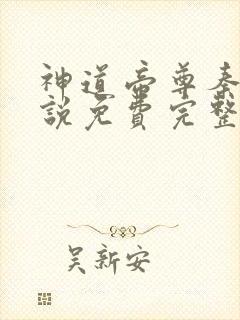 神道帝尊秦
說免費完整
吴新安